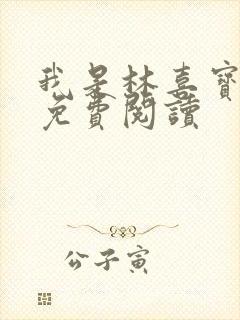 我是林喜寶
免費閱讀
公子寅